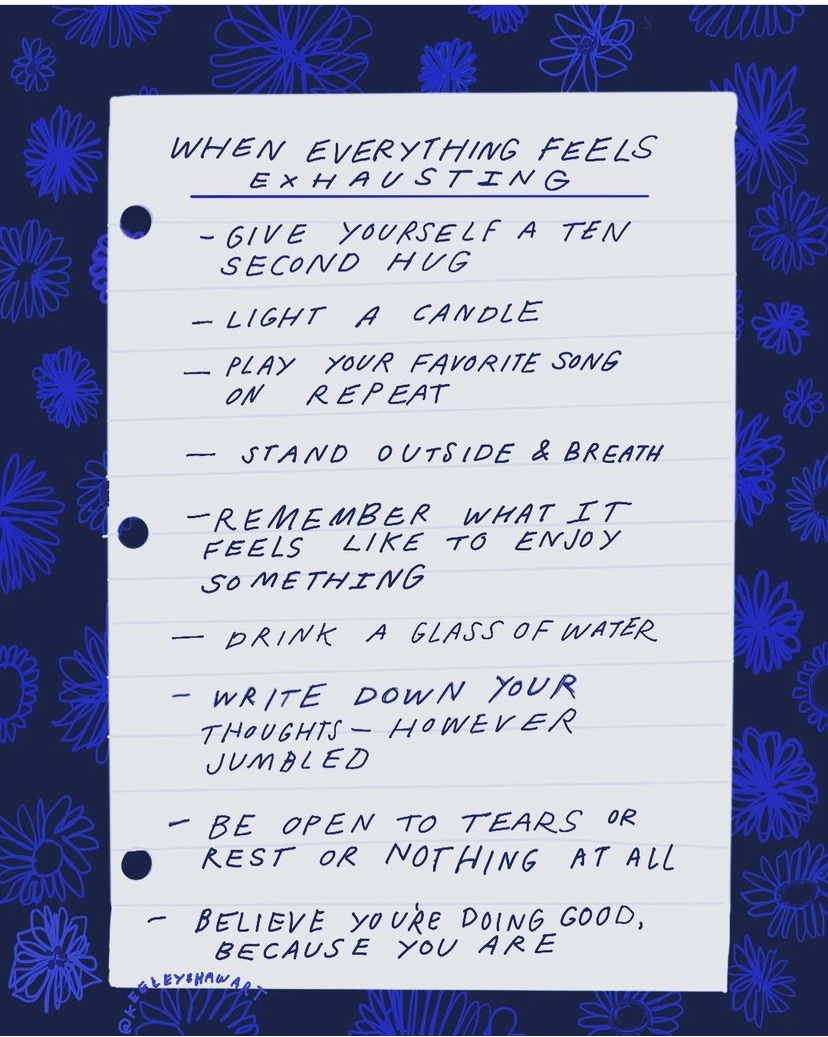 WHEN EVERYTHING FEELS
EXHAUSTING
- GIVE YOURSELF A TEN
SECOND HUG
- LIGHT A CANDLE
- PLAY YOUR FAVORITE SONG
ON REPEAT
- STAND OUTSIDE & BREATH
- REMEMBER WHAT IT
FEELS LIKE TO ENJOY
SOMETHING
- DRINK A GLASS OF WATER
- WRITE DOWN YOUR
THOUGHTS - HOWEVER
JUMBLED
- BE OPEN TO TEARS OR
REST OR NOTHING AT ALL
- BELIEVE YOU'RE DOING GOOD,
BECAUSE YOU ARE
@KEELEYSHAWART